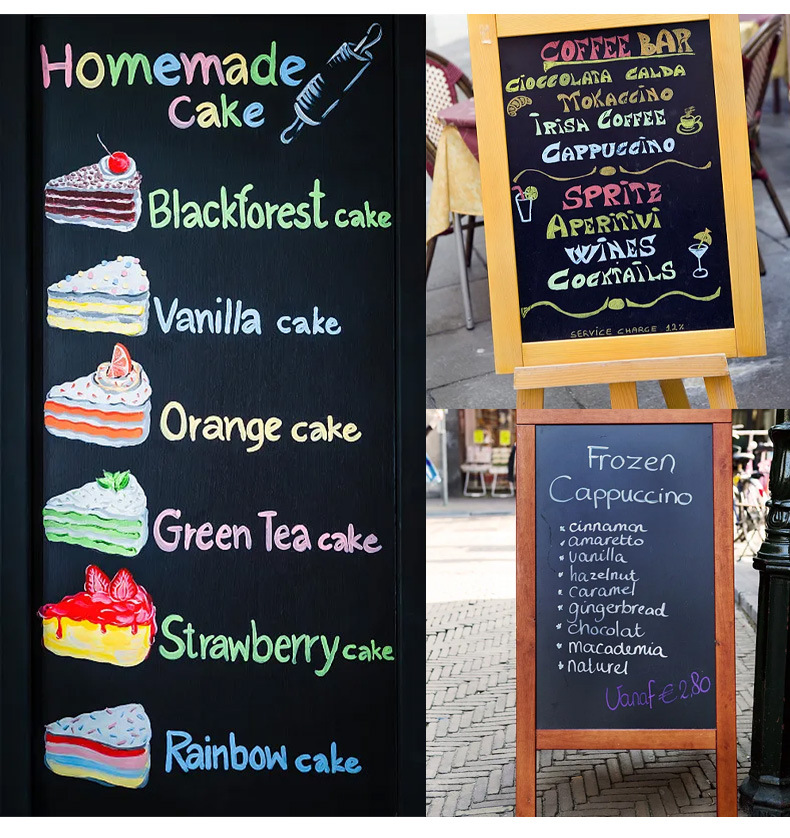 Homemade
Cake
Blackforest cake
Vanilla cake
Orange cake
Green Tea cake
Strawberry cake
Rainbow cake
COFFEE BAR
CIOCCOLATA CALDA
MOKACCINO
IRISH COFFEE
CAPPUCCINO
SPRITZ
APERITIVI
WINES
COCKTAILS
SERVICE CHARGE 12%
Frozen
Cappuccino
* cinnamon
* amaretto
* vanilla
* hazelnut
* caramel
* gingerbread
* chocolat
* macademia
* naturel
Vanaf € 2,80